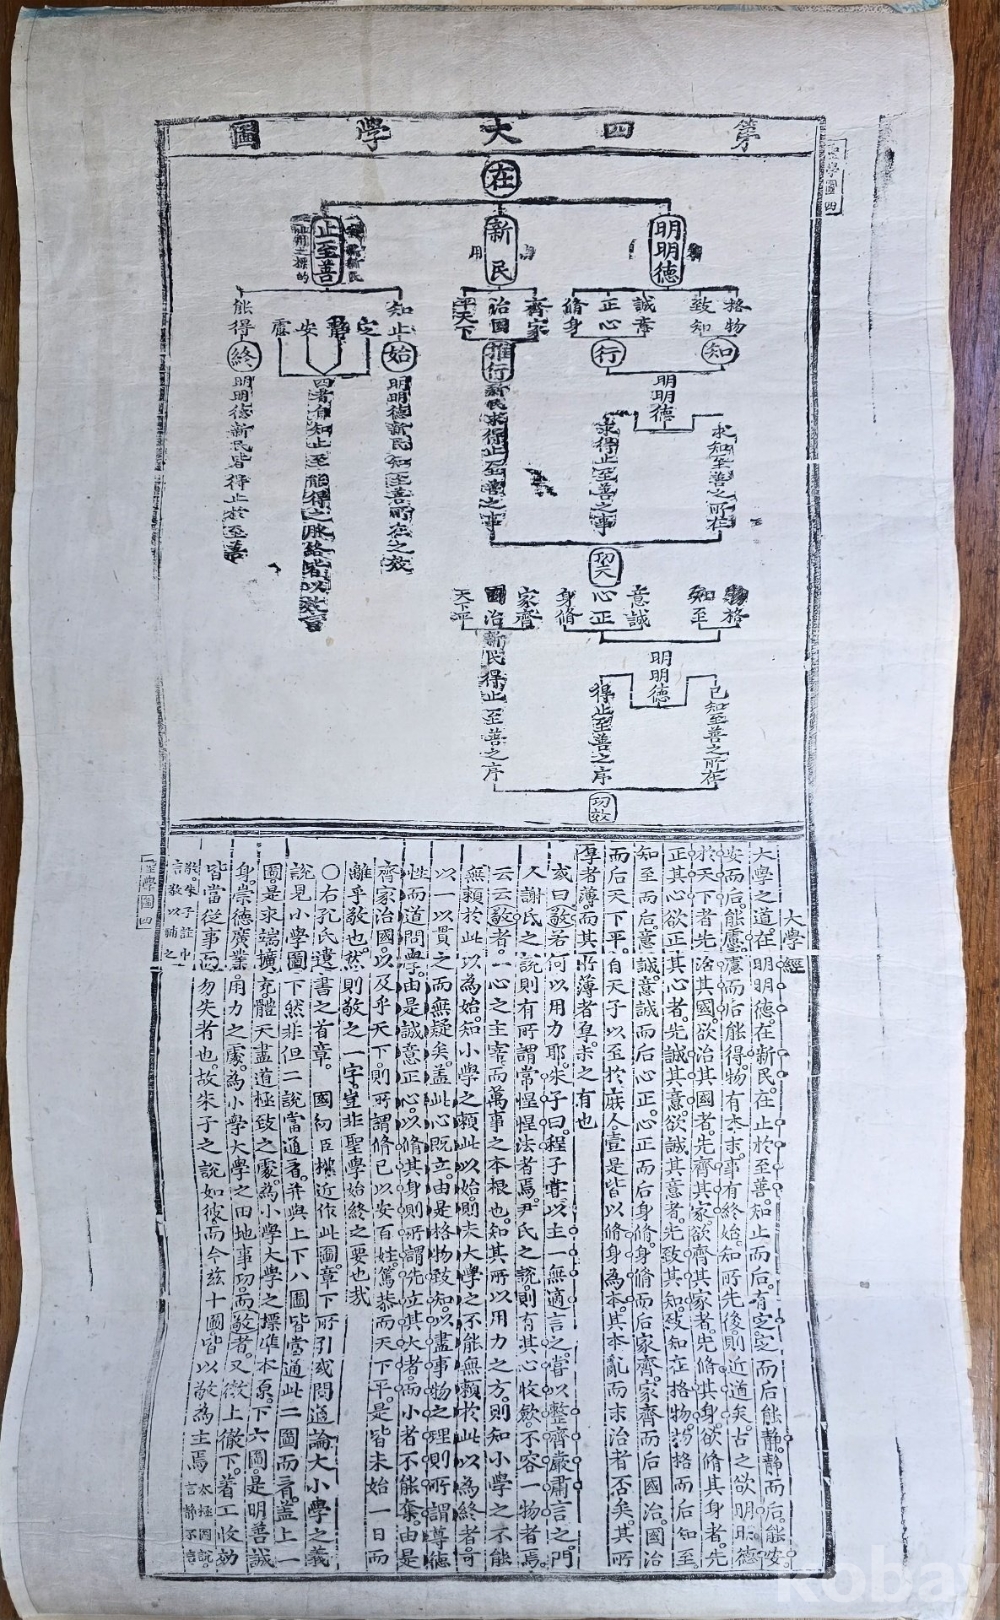 第四大學圖
聖學圖四
在
明明德
新民
用
止至善
格物
致知
誠意
正心
脩身
齊家
治國
平天下
知止
定
靜
安
慮
能得
知
行
推行
始
終
明明德
求知至善之所在
求得止至善之事
新民求得止至善之事
明明德新民知至善所在之效
四者自知止至能得之脉絡皆以效言
明明德新民皆得止於至善
功夫
物格
知至
意誠
心正
身脩
家齊
國治
天下平
明明德
已知至善之所在
得止至善之序
新民得止至善之序
功效
大學經
大學之道。在明明德。在新民。在止於至善。知止而后。有定定而后能靜。靜而后。能安。
安而后。能慮。慮而后能得。物有本末。事有終始。知所先後。則近道矣。古之欲明明德
於天下者。先治其國。欲治其國者。先齊其家。欲齊其家者。先脩其身。欲脩其身者。先
正其心。欲正其心者。先誠其意。欲誠其意者。先致其知。致知在格物。物格而后知至。
知至而后。意誠。意誠而后心正。心正而后身脩。身脩而后家齊。家齊而后國治。國治
而后天下平。自天子以至於庶人壹是皆以脩身為本。其本亂而末治者否矣。其所
厚者薄。而其所薄者厚。未之有也
或曰敬若何以用力耶。朱子曰。程子嘗以主一無適言之。嘗以整齊嚴肅言之。門
人謝氏之說則有所謂常惺惺法者焉。尹氏之說則有其心收斂。不容一物者焉。
云云敬者。一心之主宰而萬事之本根也。知其所以用力之方。則知小學之不能
無賴於此以為始。知小學之賴此以始。則夫大學之不能無賴於此以為終者。可
以一以貫之而無疑矣。蓋此心既立。由是格物致知。以盡事物之理則所謂尊德
性而道問學。由是誠意正心。以脩其身則所謂先立其大者。而小者不能奪。由是
齊家治國。以及乎天下。則所謂脩已以安百姓。篤恭而天下平。是皆未始一日而
離乎敬也。然則敬之一字。豈非聖學始終之要也哉
○右孔氏遺書之首章。 國初臣權近作此圖。章下所引或問通論大小學之義
說見小學圖下然非但二說當通看。并與上下八圖皆當通此二圖而看。蓋上一
圖是求端擴充體天盡道極致之處。為小學大學之標準本原。下六圖是明善誠
身。崇德廣業。用力之處。為小學大學之田地事功。而敬者。又徹上徹下。著工收効
皆當從事而勿失者也。故朱子之說如彼。而今茲十圖皆以敬為主焉
太極圖說。
言靜不言
敬。朱子註中
言敬以補之
聖學圖四
kobay